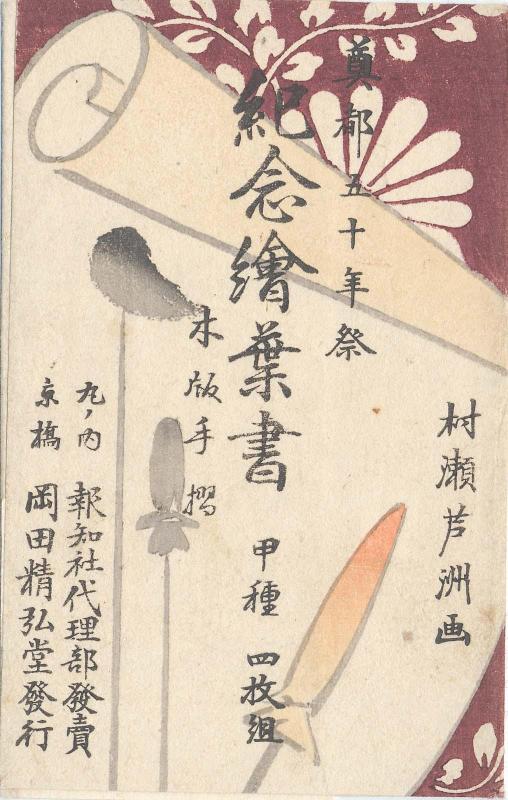 奠都五十年祭
紀念繪葉書
木版手摺
甲種 四枚組
村瀬芦洲画
丸ノ内 報知社代理部發賣
京橋 岡田精弘堂發行